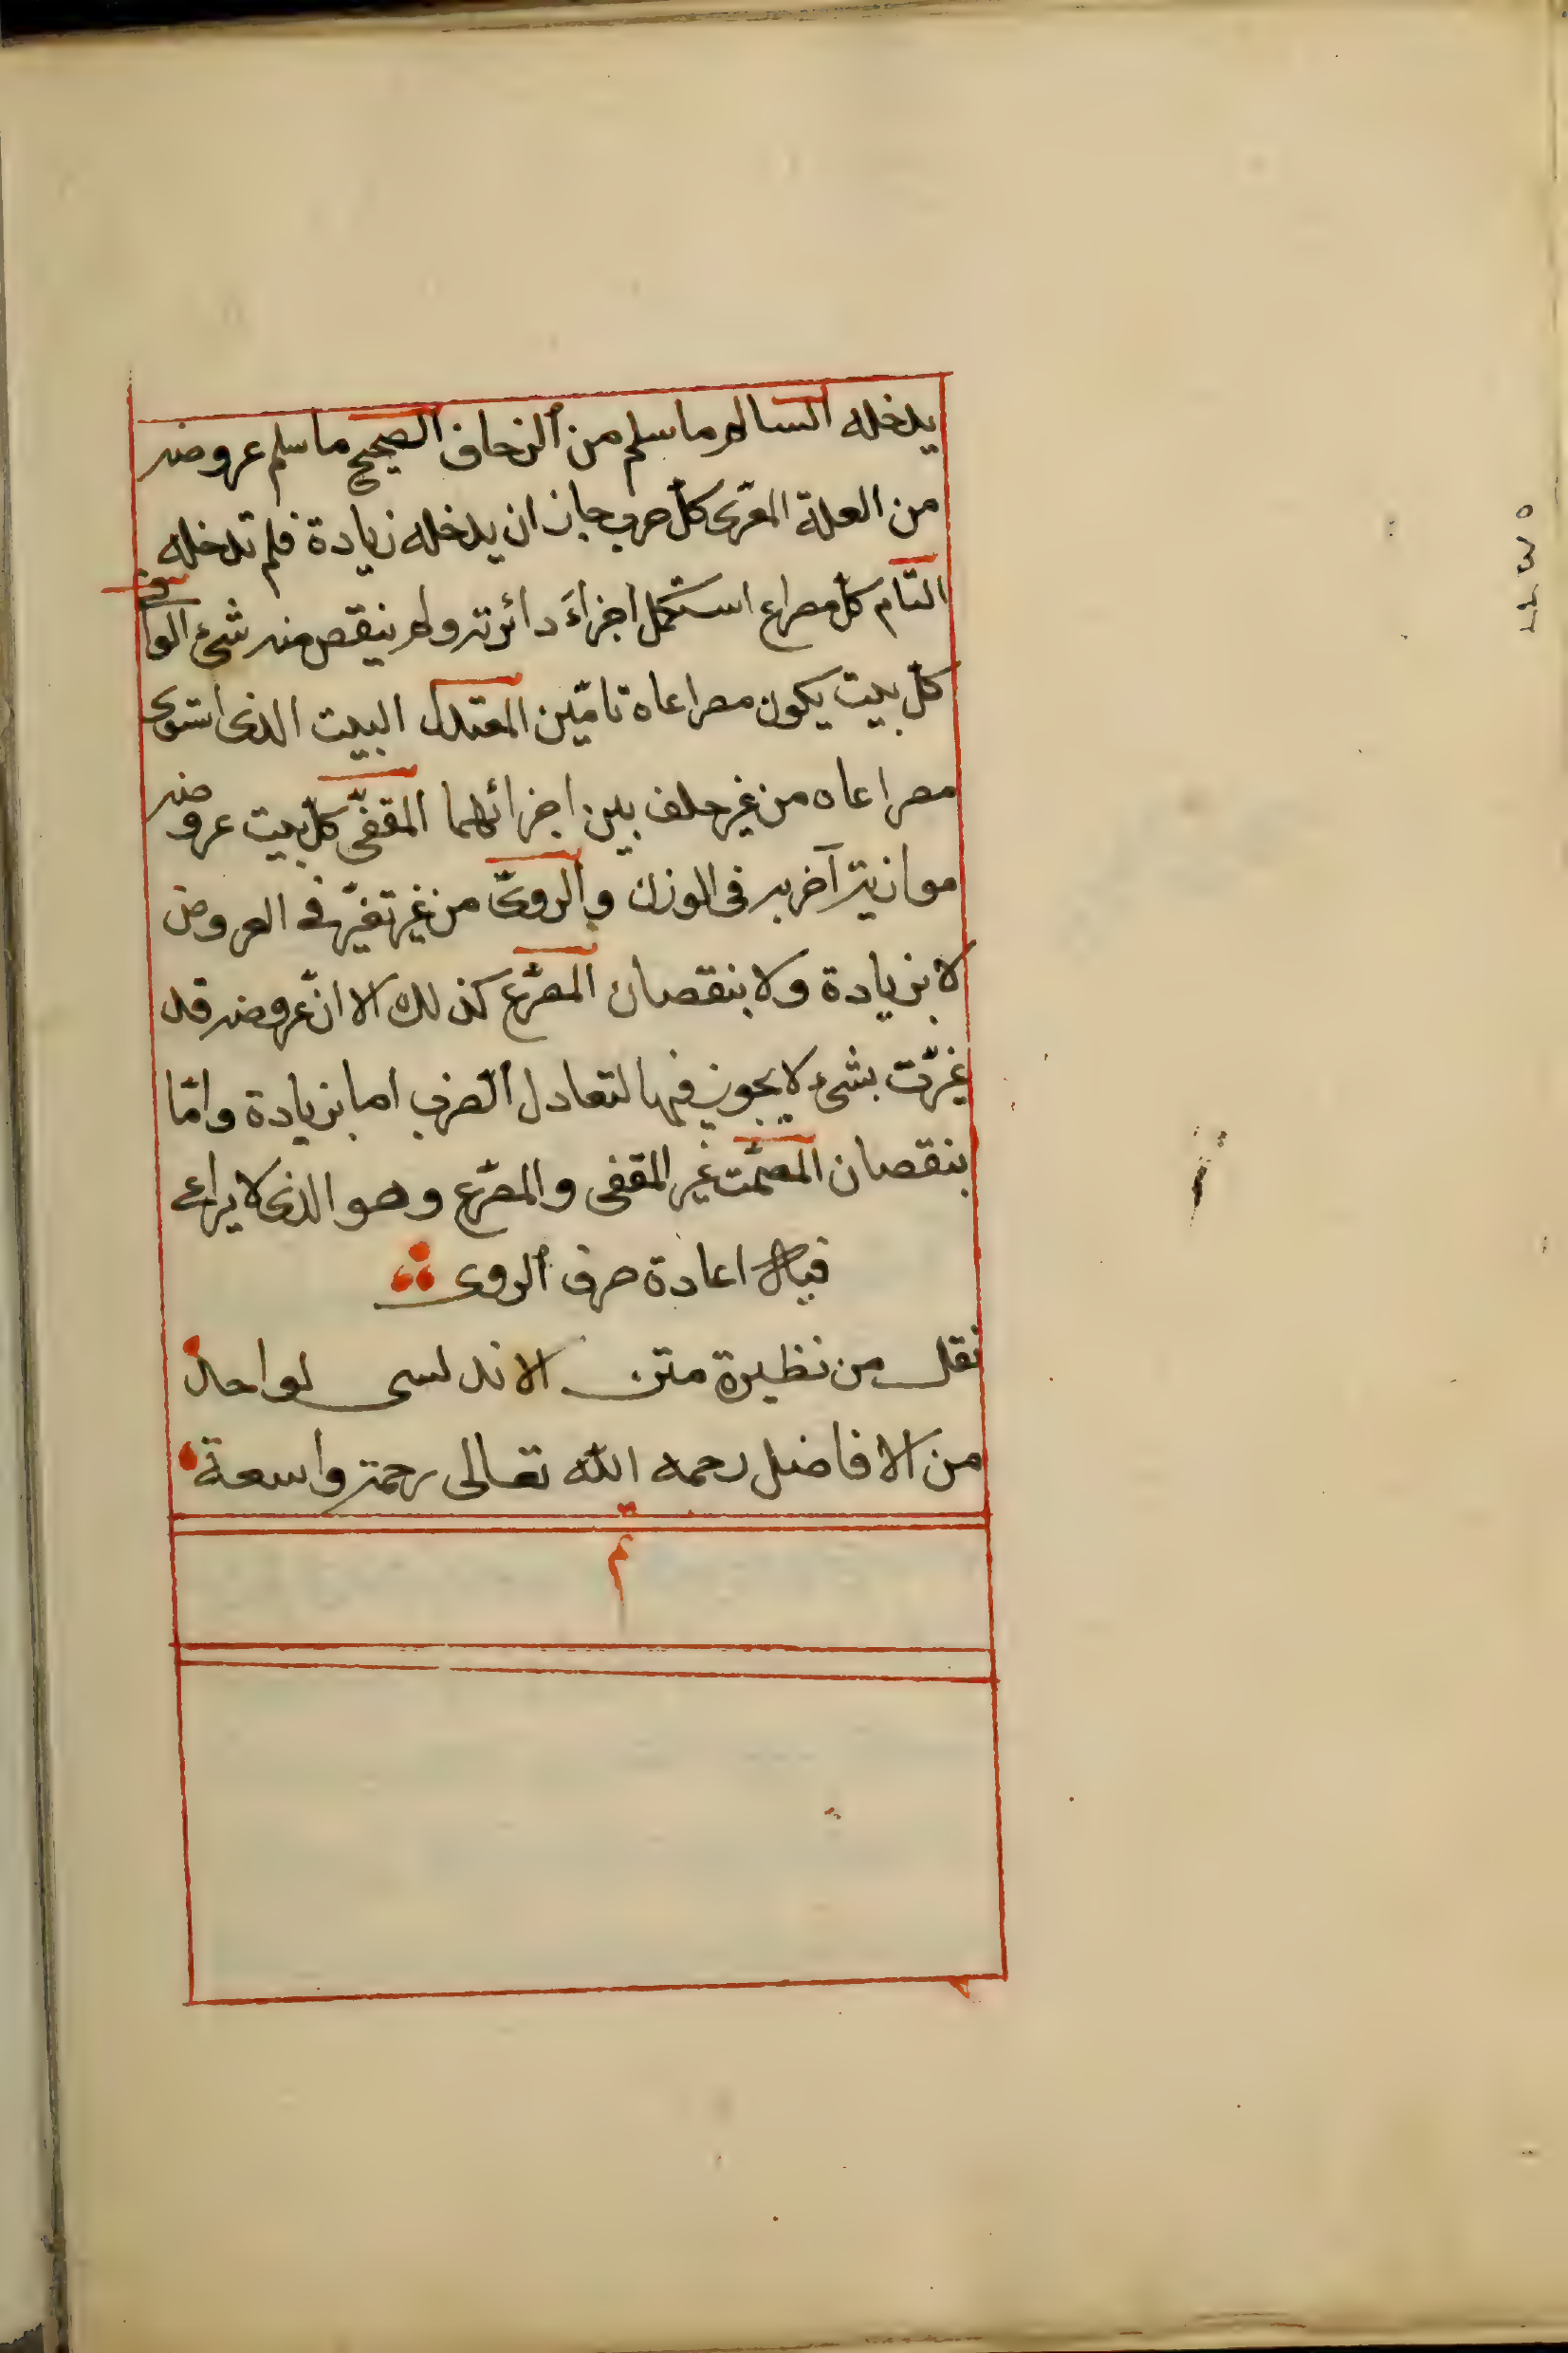 يدخله السالم ما سلم من الزحاف الصحيح ما سلم عروضه
من العلة المعرّى كلّ ضرب جاز ان يدخله زيادة فلم تدخله
التّام كلّ مصراع استكمل اجزاءَ دائرته ولم ينقص منه شئ الوافى
كلّ بيت يكون مصراعاه تامّين المعتدل البيت الذى استوى
مصراعاه من غير خلف بين اجزائهما المقفّى كلّ بيت عروضه
موازية آخر به فى الوزن والروىّ من غير تغيّر فى العروض
لا بزيادة ولا بنقصان المصّرع كذلك الا انّ عروضه قد
غيّرت بشئ لا يجوز فيها لتعادل الضرب اما بزيادة وامّا
بنقصان المصمّت غير المقفى والمصّرع وهو الذى لا يراعى
فيه اعادة حرف الروى
نقل من نظيرة متن الاندلسى لواحد
من الافاضل رحمه الله تعالى رحمة واسعة
تم